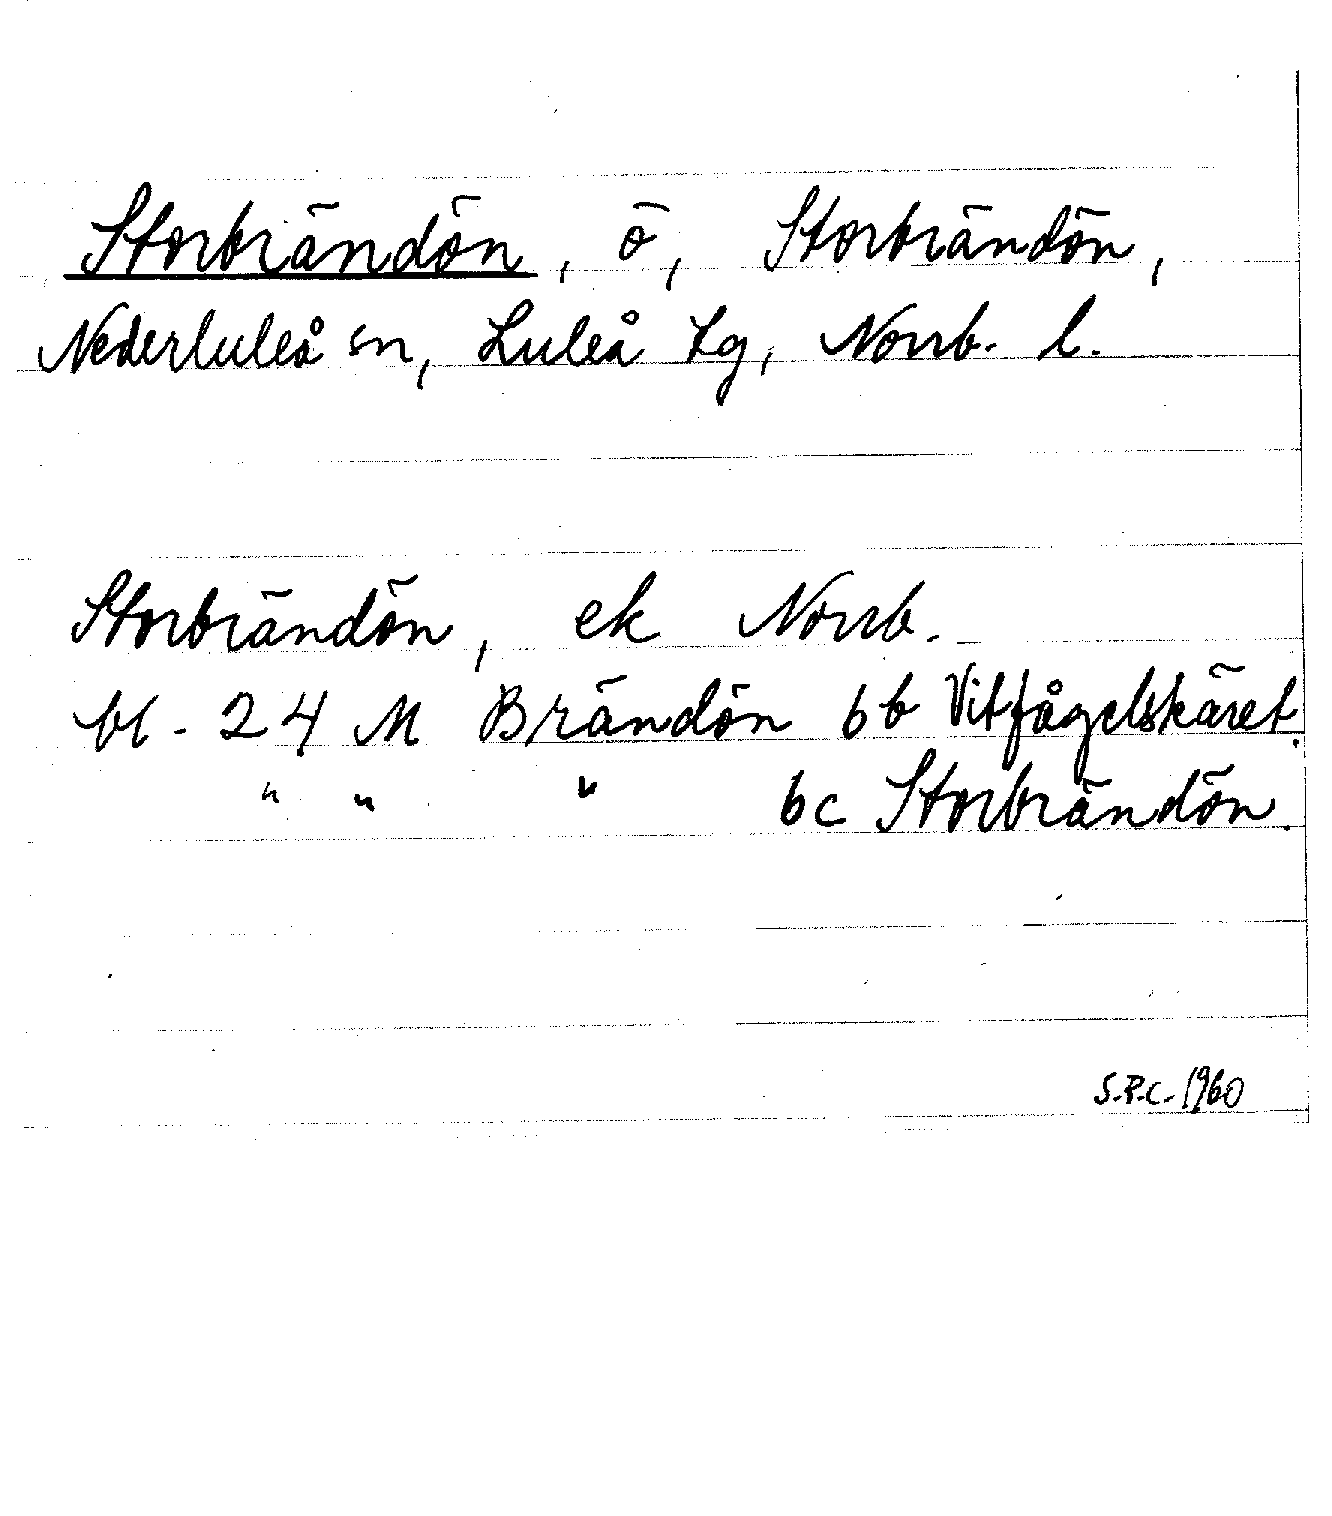 Storbrändön, ö, Storbrändön,
Nederluleå sn, Luleå tg, Norrb. l.
Storbrändön, ek Norrb.
bl. 24 M Brändön 6b Vitfågelskäret.
" " " 6c Storbrändön.
S.R.C. 1960